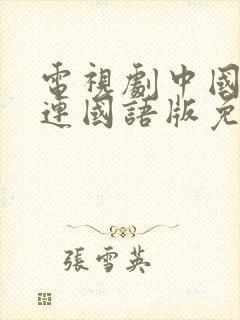 電視劇中國
連國語版免
張雪英